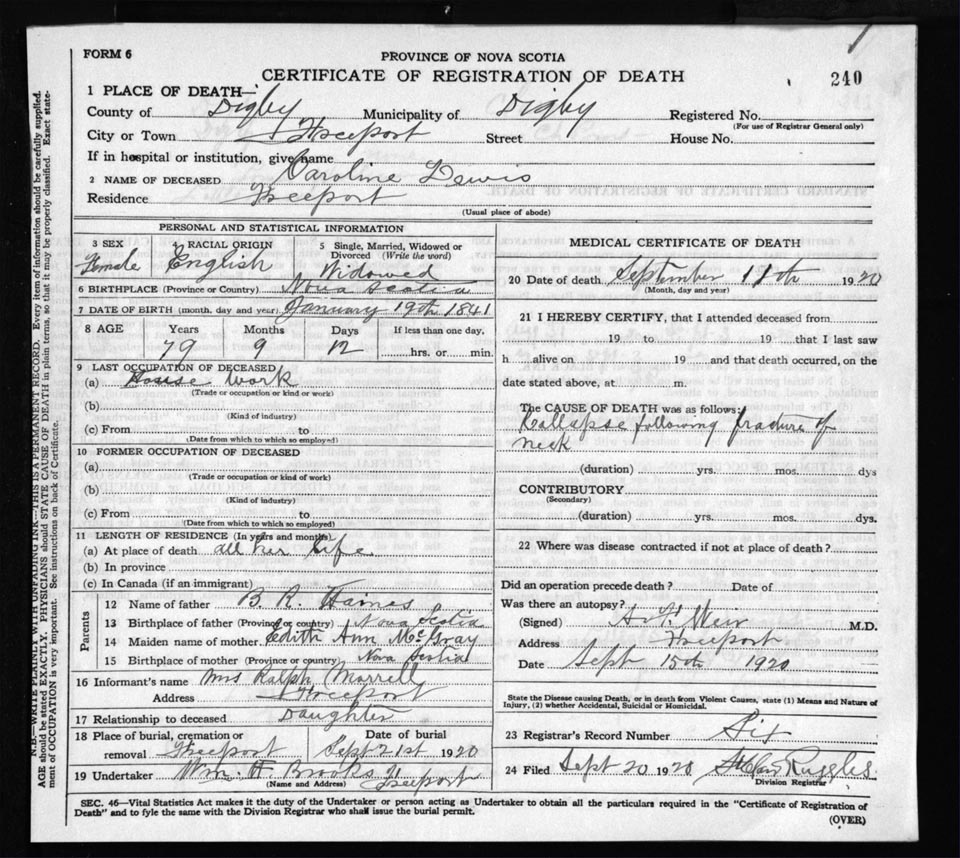 FORM 6
PROVINCE OF NOVA SCOTIA
CERTIFICATE OF REGISTRATION OF DEATH
240
1 PLACE OF DEATH—
County of Digby Municipality of Digby Registered No.
(For use of Registrar General only)
City or Town Freeport Street House No.
If in hospital or institution, give name
2 NAME OF DECEASED Caroline Lewis
Residence Freeport
(Usual place of abode)
PERSONAL AND STATISTICAL INFORMATION
3 SEX 4 RACIAL ORIGIN 5 Single, Married, Widowed or Divorced (Write the word)
Female English Widowed
6 BIRTHPLACE (Province or Country) Nova Scotia
7 DATE OF BIRTH (month, day and year) January 19th 1841
8 AGE Years Months Days If less than one day,
79 9 12 hrs. or min.
9 LAST OCCUPATION OF DECEASED
(a) House Work
(Trade or occupation or kind or work)
(b)
(Kind of industry)
(c) From to
(Date from which to which so employed)
10 FORMER OCCUPATION OF DECEASED
(a)
(Trade or occupation or kind of work)
(b)
(Kind of industry)
(c) From to
(Date from which to which so employed)
11 LENGTH OF RESIDENCE (In years and months)
(a) At place of death all her life
(b) In province
(c) In Canada (if an immigrant)
Parents
12 Name of father B. R. Haines
13 Birthplace of father (Province or country) Nova Scotia
14 Maiden name of mother Edith Ann McGray
15 Birthplace of mother (Province or country) Nova Scotia
16 Informant's name Mrs Ralph Morrell
Address Freeport
17 Relationship to deceased Daughter
18 Place of burial, cremation or removal Freeport Date of burial Sept 21st 1920
19 Undertaker Wm. H. Brooks Freeport
(Name and Address)
MEDICAL CERTIFICATE OF DEATH
20 Date of death September 11th 1920
(Month, day and year)
21 I HEREBY CERTIFY, that I attended deceased from
19 to 19 that I last saw
h alive on 19 and that death occurred, on the
date stated above, at m.
The CAUSE OF DEATH was as follows:
Collapse following fracture of
neck
(duration) yrs. mos. dys
CONTRIBUTORY
(Secondary)
(duration) yrs. mos. dys.
22 Where was disease contracted if not at place of death?
Did an operation precede death? Date of
Was there an autopsy?
(Signed) Weir M.D.
Address Freeport
Date Sept 15th 1920
State the Disease causing Death, or in death from Violent Causes, state (1) Means and Nature of
Injury, (2) whether Accidental, Suicidal or Homicidal.
23 Registrar's Record Number Six
24 Filed Sept 20 1920 Ruggles.
Division Registrar
SEC. 46—Vital Statistics Act makes it the duty of the Undertaker or person acting as Undertaker to obtain all the particulars required in the "Certificate of Registration of
Death" and to fyle the same with the Division Registrar who shall issue the burial permit.
(OVER)
N.B.—WRITE PLAINLY WITH UNFADING INK—THIS IS A PERMANENT RECORD. Every item of information should be carefully supplied.
AGE should be stated EXACTLY. PHYSICIANS should STATE CAUSE OF DEATH in plain terms, so that it may be properly classified. Exact state-
ment of OCCUPATION is very important. See instructions on back of Certificate.